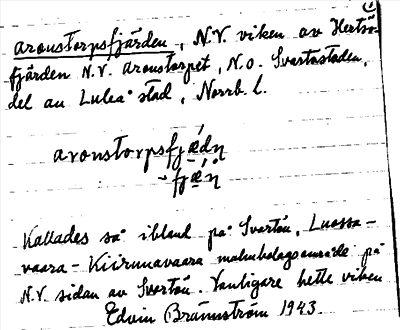 Aronstorpsfjärden, N.V. viken av Hertsö-
fjärden N.V. Aronstorpet, N.O. Svartöstaden,
del av Luleå stad, Norrb. l.
aronstorpsfjǽdn
- fjǽn
Kallades så ibland på Svartön, Luossa-
vaara - Kiirunavaara malmbolagsområde på
N.V. sidan av Svartön. Vanligare hette viken
Edvin Brännström 1943